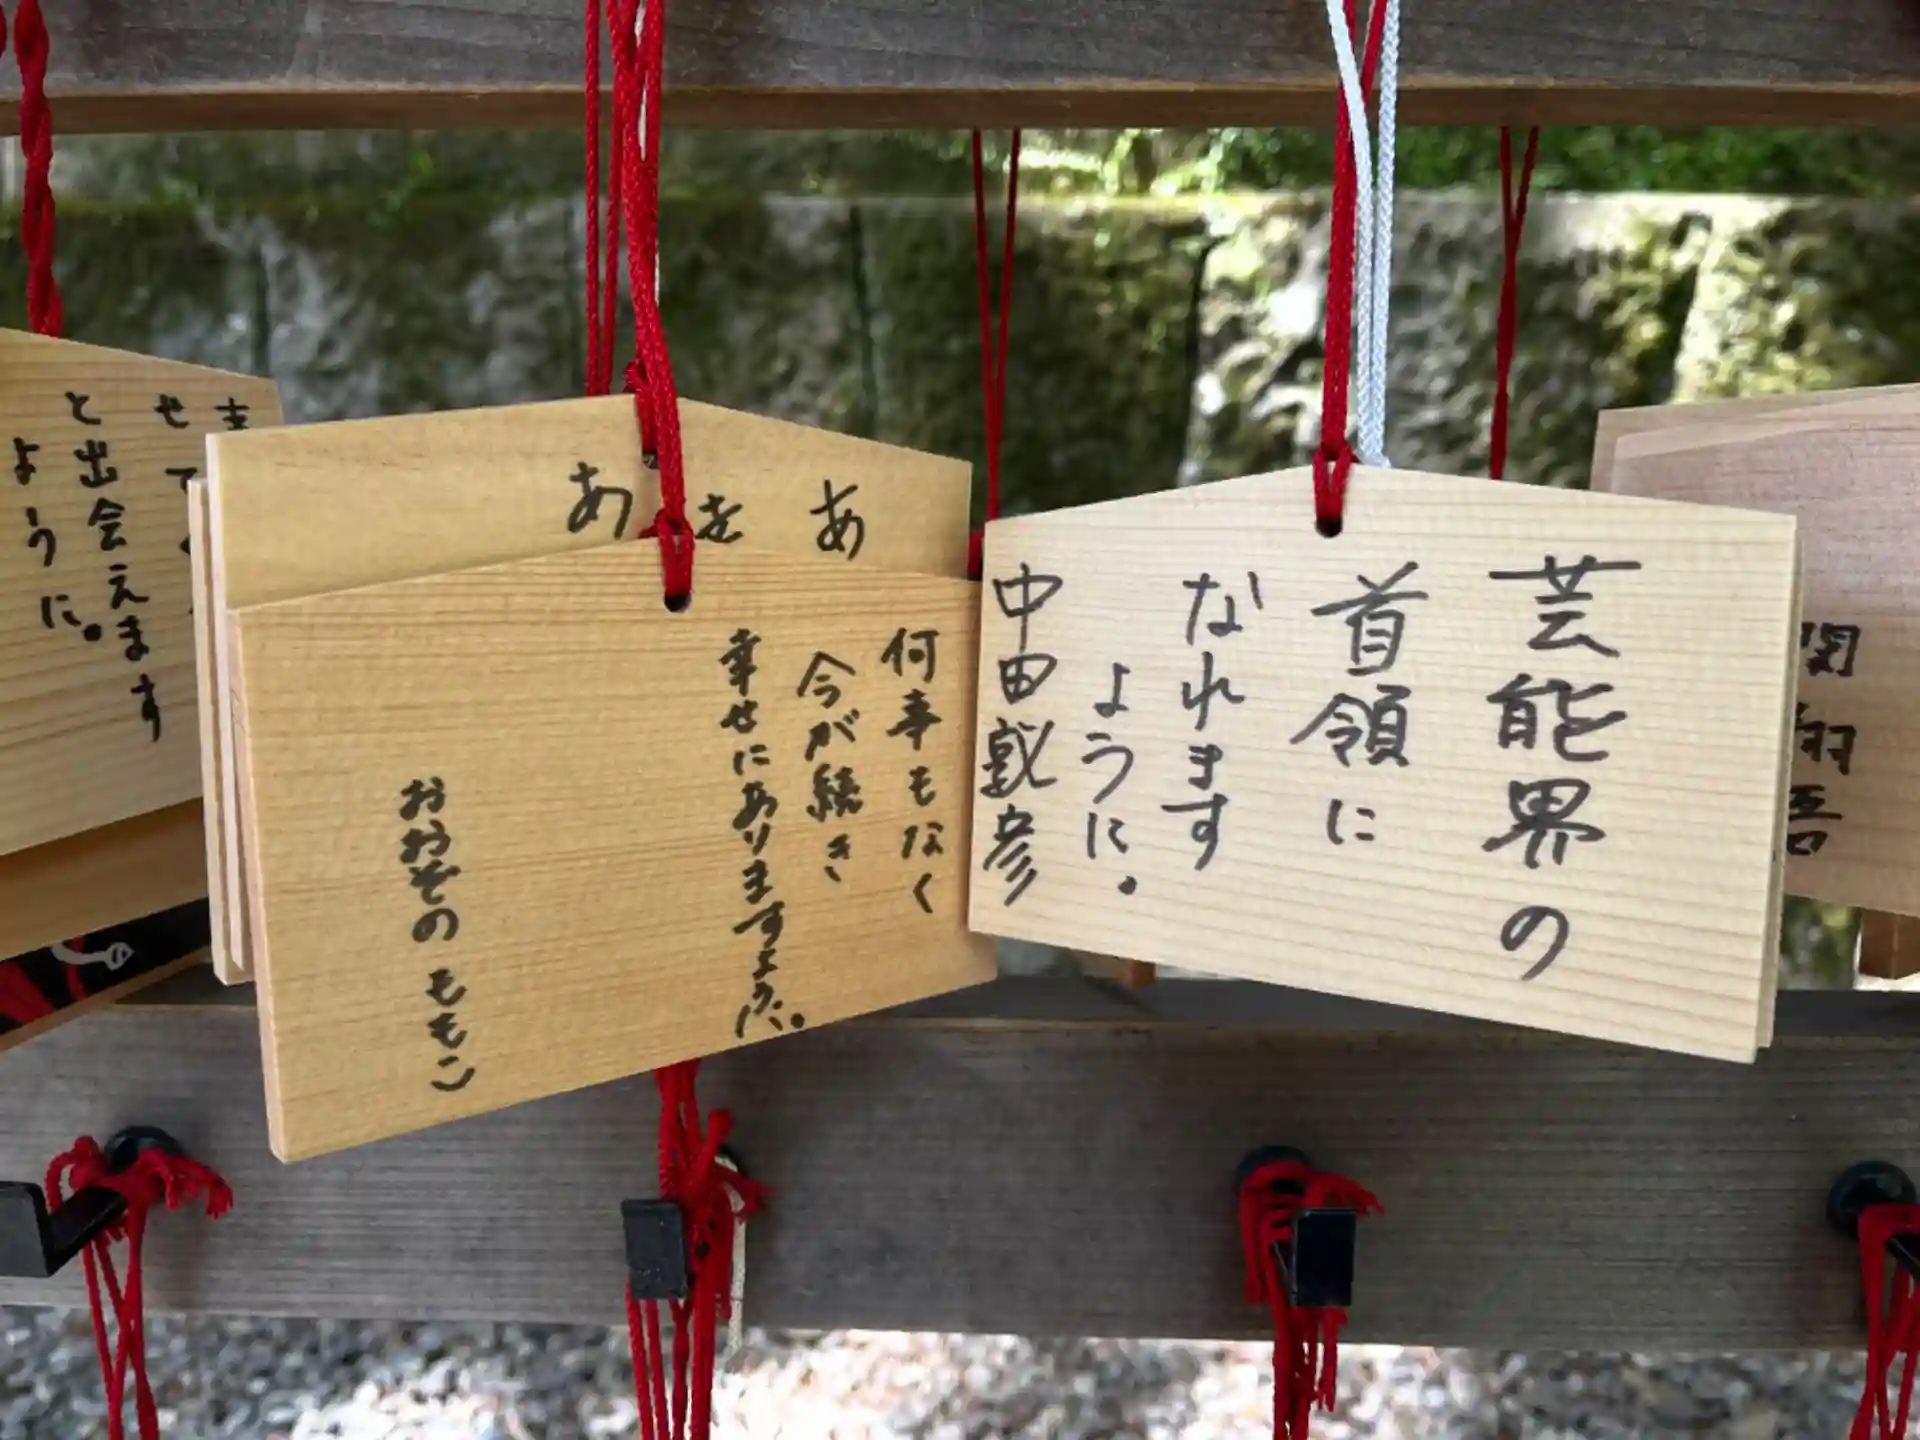 芸能界の
首領に
なれます
ように。
中田敦彦
何事もなく
今が続き
幸せにありますように。
おおぞの ももこ
あ
を
あ
せて
と出会えます
ように。
関
翔
吾